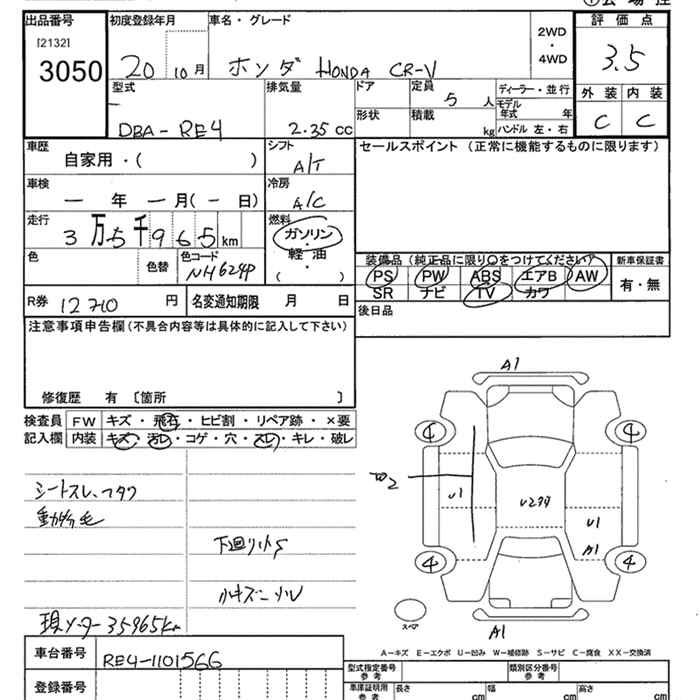 出品番号
[2132]
3050
初度登録年月
20 10月
車名・グレード
ホンダ HONDA CR-V
2WD
・
4WD
評価点
3.5
外装 内装
C C
型式
DBA-RE4
排気量
2.35 cc
ドア
形状
定員 5 人
積載 kg
ディーラー・並行
モデル年式 年
ハンドル 左・右
車歴
自家用・( )
シフト
A/T
セールスポイント (正常に機能するものに限ります)
車検
ー 年 ー 月(ー 日)
冷房
A/C
走行
3万5千965km
燃料
ガソリン
軽・油
( )
色
色替
色コード
NH624P
装備品 (純正品に限り○をつけてください)
PS PW ABS エアB AW
SR ナビ TV カワ
新車保証書
有・無
R券 12710 円
名変通知期限 月 日
後日品
注意事項申告欄(不具合内容等は具体的に記入して下さい)
修復歴 有 〔箇所 〕
検査員記入欄
FW キズ・飛石・ヒビ割・リペア跡・×要
内装 キズ・汚レ・コゲ・穴・スレ・キレ・破レ
シートスレ、フタワ
動物毛
下廻り小S
小キズ 小U
現メーター35965km
A1
4 4
U1
U2
U1
A1
4 4
スペア
A1
A-キズ E-エクボ U-凹み W-補修跡 S-サビ C-腐食 XX-交換済
車台番号
RE4-1101566
登録番号
型式指定番号
参考
類別区分番号
参考
車庫証明用
参考
長さ cm
幅 cm
高さ cm